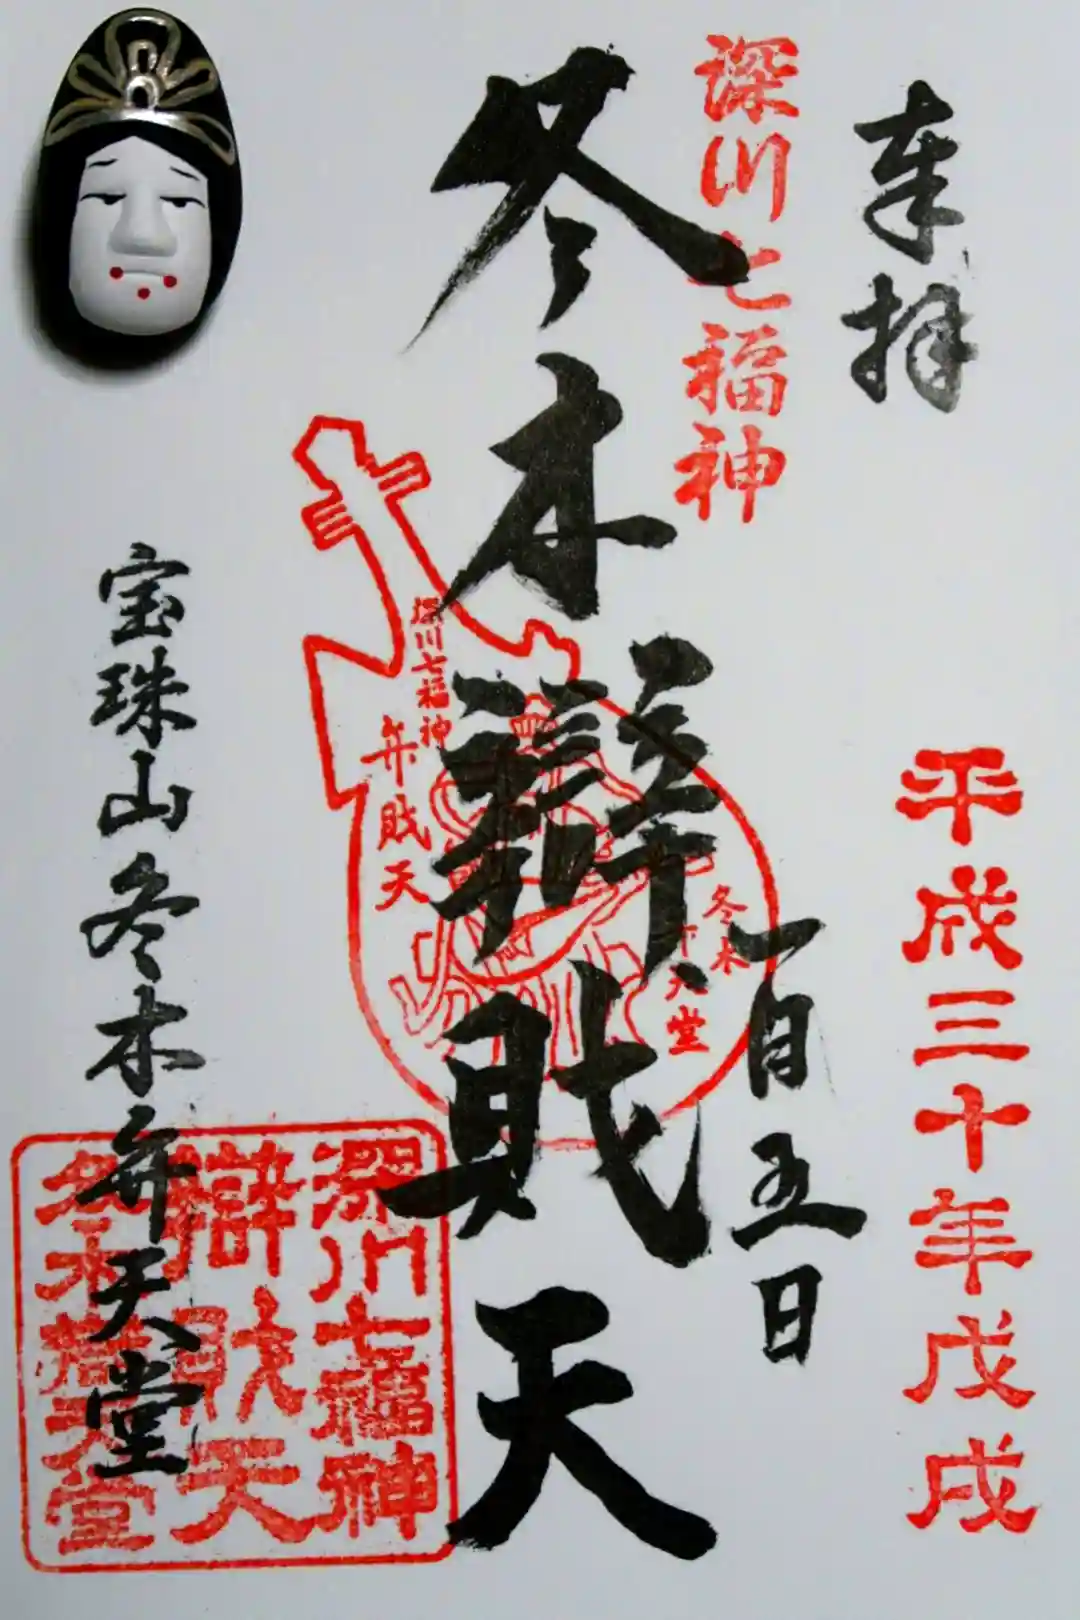 奉拝
平成三十年戊戌
深川七福神
一月五日
冬木辯財天
深川七福神
弁財天
冬木
天堂
宝珠山冬木弁天堂
深川七福神
辯財天
冬木辯天堂